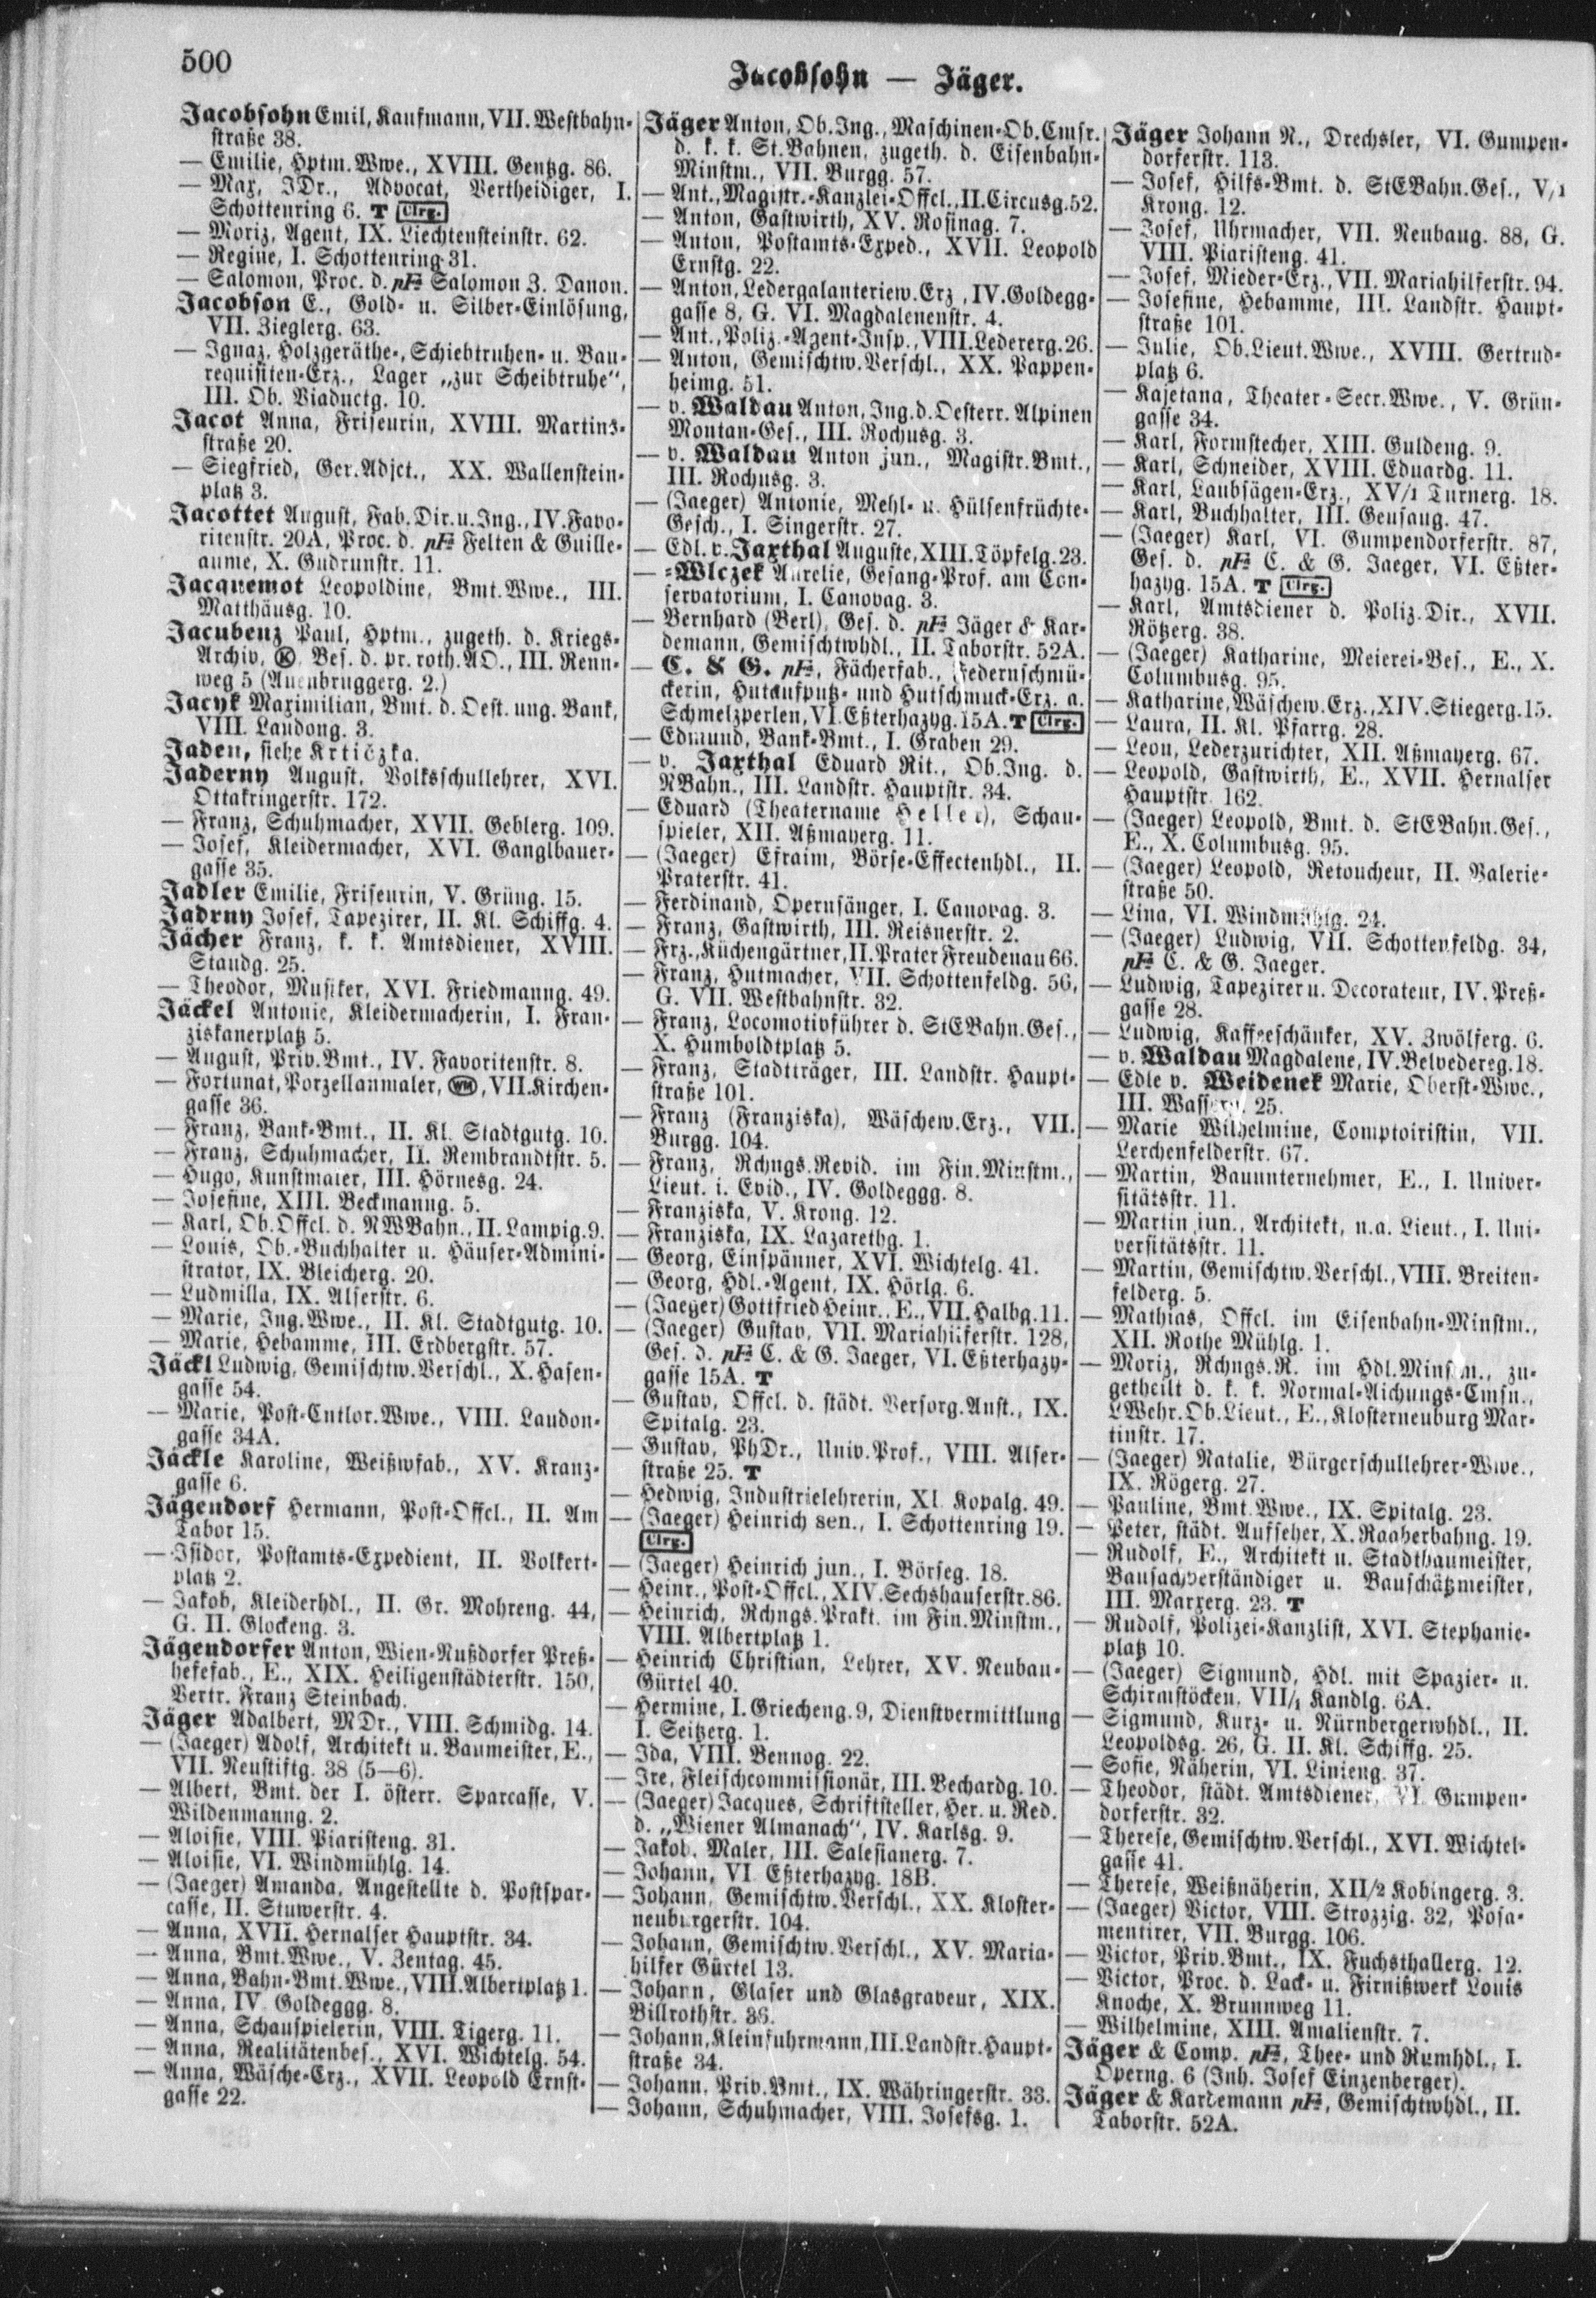 500
Jacobsohn — Jäger.
Jacobsohn Emil, Kaufmann, VII. Westbahn-
straße 38.
— Emilie, Hptm. Wwe., XVIII. Gentzg. 86.
— Max, JDr., Advocat, Vertheidiger, I.
Schottenring 6. T Clrg.
— Moriz, Agent, IX. Liechtensteinstr. 62.
— Regine, I. Schottenring 31.
— Salomon, Proc. d. pFa Salomon J. Danon.
Jacobson E., Gold- u. Silber-Einlösung,
VII. Zieglerg. 63.
— Ignaz, Holzgeräthe-, Schiebtruhen- u. Bau-
requisiten-Erz., Lager „zur Scheibtruhe“,
III. Ob. Viaductg. 10.
Jacot Anna, Friseurin, XVIII. Martins-
straße 20.
— Siegfried, Ger. Adjct., XX. Wallenstein-
platz 3.
Jacottet August, Fab. Dir. u. Ing., IV. Favo-
ritenstr. 20A, Proc. d. pFa Felten & Guille-
aume, X. Gudrunstr. 11.
Jacquemot Leopoldine, Bmt. Wwe., III.
Matthäusg. 10.
Jacubenz Paul, Hptm., zugeth. d. Kriegs-
Archiv, K, Bes. d. pr. roth. AO., III. Renn-
weg 5 (Auenbruggerg. 2.)
Jacyk Maximilian, Bmt. d. Oest. ung. Bank,
VIII. Laudong. 3.
Jaden, siehe Krticzka.
Jaderny August, Volksschullehrer, XVI.
Ottakringerstr. 172.
— Franz, Schuhmacher, XVII. Geblerg. 109.
— Josef, Kleidermacher, XVI. Ganglbauer-
gasse 35.
Jadler Emilie, Friseurin, V. Grüng. 15.
Jadrny Josef, Tapezirer, II. Kl. Schiffg. 4.
Jächer Franz, k. k. Amtsdiener, XVIII.
Staudg. 25.
— Theodor, Musiker, XVI. Friedmanng. 49.
Jäckel Antonie, Kleidermacherin, I. Fran-
ziskanerplatz 5.
— August, Priv. Bmt., IV. Favoritenstr. 8.
— Fortunat, Porzellanmaler, WM, VII. Kirchen-
gasse 36.
— Franz, Bank-Bmt., II. Kl. Stadtgutg. 10.
— Franz, Schuhmacher, II. Rembrandtstr. 5.
— Hugo, Kunstmaler, III. Hörnesg. 24.
— Josefine, XIII. Beckmanng. 5.
— Karl, Ob. Offcl. d. NWBahn., II. Lampig. 9.
— Louis, Ob.-Buchhalter u. Häuser-Admini-
strator, IX. Bleicherg. 20.
— Ludmilla, IX. Alserstr. 6.
— Marie, Ing. Wwe., II. Kl. Stadtgutg. 10.
— Marie, Hebamme, III. Erdbergstr. 57.
Jäckl Ludwig, Gemischtw. Verschl., X. Hasen-
gasse 54.
— Marie, Post-Cntlor. Wwe., VIII. Laudon-
gasse 34A.
Jäckle Karoline, Weißwfab., XV. Kranz-
gasse 6.
Jägendorf Hermann, Post-Offcl., II. Am
Tabor 15.
— Isidor, Postamts-Expedient, II. Volkert-
platz 2.
— Jakob, Kleiderhdl., II. Gr. Mohreng. 44,
G. II. Glockeng. 3.
Jägendorfer Anton, Wien-Nußdorfer Preß-
hefefab., E., XIX. Heiligenstädterstr. 150,
Vertr. Franz Steinbach.
Jäger Adalbert, MDr., VIII. Schmidg. 14.
— (Jaeger) Adolf, Architekt u. Baumeister, E.,
VII. Neustiftg. 38 (5—6).
— Albert, Bmt. der I. österr. Sparcasse, V.
Wildenmanng. 2.
— Aloisie, VIII. Piaristeng. 31.
— Aloisie, VI. Windmühlg. 14.
— (Jaeger) Amanda, Angestellte d. Postspar-
casse, II. Stuwerstr. 4.
— Anna, XVII. Hernalser Hauptstr. 34.
— Anna, Bmt. Wwe., V. Zentag. 45.
— Anna, Bahn-Bmt. Wwe., VIII. Albertplatz 1.
— Anna, IV. Goldeggg. 8.
— Anna, Schauspielerin, VIII. Tigerg. 11.
— Anna, Realitätenbes., XVI. Wichtelg. 54.
— Anna, Wäsche-Erz., XVII. Leopold Ernst-
gasse 22.
Jäger Anton, Ob. Ing., Maschinen-Ob. Cmsr.
d. k. k. St. Bahnen, zugeth. d. Eisenbahn-
Minstm., VII. Burgg. 57.
— Ant., Magistr.-Kanzlei-Offcl., II. Circusg. 52.
— Anton, Gastwirth, XV. Rosinag. 7.
— Anton, Postamts-Exped., XVII. Leopold
Ernstg. 22.
— Anton, Ledergalanteriew. Erz., IV. Goldegg-
gasse 8, G. VI. Magdalenenstr. 4.
— Ant., Poliz.-Agent-Insp., VIII. Ledererg. 26.
— Anton, Gemischtw. Verschl., XX. Pappen-
heimg. 51.
— v. Waldau Anton, Ing. d. Oesterr. Alpinen
Montan-Ges., III. Rochusg. 3.
— v. Waldau Anton jun., Magistr. Bmt.,
III. Rochusg. 3.
— (Jaeger) Antonie, Mehl- u. Hülsenfrüchte-
Gesch., I. Singerstr. 27.
— Edl. v. Jaxthal Auguste, XIII. Töpfelg. 23.
— =Wlczek Aurelie, Gesang-Prof. am Con-
servatorium, I. Canovag. 3.
— Bernhard (Berl), Ges. d. pFa Jäger & Kar-
demann, Gemischtwhdl., II. Taborstr. 52A.
— C. & G. pFa, Fächerfab., Federnschmü-
ckerin, Hutaufputz- und Hutschmuck-Erz. a.
Schmelzperlen, VI. Eßterhazyg. 15A. T Clrg.
— Edmund, Bank-Bmt., I. Graben 29.
— v. Jaxthal Eduard Rit., Ob. Ing. d.
NBahn., III. Landstr. Hauptstr. 34.
— Eduard (Theatername Heller), Schau-
spieler, XII. Aßmayerg. 11.
— (Jaeger) Efraim, Börse-Effectenhdl., II.
Praterstr. 41.
— Ferdinand, Opernsänger, I. Canovag. 3.
— Franz, Gastwirth, III. Reisnerstr. 2.
— Frz., Küchengärtner, II. Prater Freudenau 66.
— Franz, Hutmacher, VII. Schottenfeldg. 56,
G. VII. Westbahnstr. 32.
— Franz, Locomotivführer d. StEBahn. Ges.,
X. Humboldtplatz 5.
— Franz, Stadtträger, III. Landstr. Haupt-
straße 101.
— Franz (Franziska), Wäschew. Erz., VII.
Burgg. 104.
— Franz, Rchngs. Revid. im Fin. Minstm.,
Lieut. i. Evid., IV. Goldeggg. 8.
— Franziska, V. Krong. 12.
— Franziska, IX. Lazarethg. 1.
— Georg, Einspänner, XVI. Wichtelg. 41.
— Georg, Hdl.-Agent, IX. Hörlg. 6.
— (Jaeger) Gottfried Heinr., E., VII. Halbg. 11.
— (Jaeger) Gustav, VII. Mariahilferstr. 128,
Ges. d. pFa C. & G. Jaeger, VI. Eßterhazy-
gasse 15A. T
— Gustav, Offcl. d. städt. Versorg. Anst., IX.
Spitalg. 23.
— Gustav, PhDr., Univ. Prof., VIII. Alser-
straße 25. T
— Hedwig, Industrielehrerin, XI. Kopalg. 49.
— (Jaeger) Heinrich sen., I. Schottenring 19.
Clrg.
— (Jaeger) Heinrich jun., I. Börseg. 18.
— Heinr., Post-Offcl., XIV. Sechshauserstr. 86.
— Heinrich, Rchngs. Prakt. im Fin. Minstm.,
VIII. Albertplatz 1.
— Heinrich Christian, Lehrer, XV. Neubau-
Gürtel 40.
— Hermine, I. Griecheng. 9, Dienstvermittlung
I. Seitzerg. 1.
— Ida, VIII. Bennog. 22.
— Ire, Fleischcommissionär, III. Bechardg. 10.
— (Jaeger) Jacques, Schriftsteller, Her. u. Red.
d. „Wiener Almanach“, IV. Karlsg. 9.
— Jakob, Maler, III. Salesianerg. 7.
— Johann, VI. Eßterhazyg. 18B.
— Johann, Gemischtw. Verschl., XX. Kloster-
neuburgerstr. 104.
— Johann, Gemischtw. Verschl., XV. Maria-
hilfer Gürtel 13.
— Johann, Glaser und Glasgraveur, XIX.
Billrothstr. 36.
— Johann, Kleinfuhrmann, III. Landstr. Haupt-
straße 34.
— Johann, Priv. Bmt., IX. Währingerstr. 33.
— Johann, Schuhmacher, VIII. Josefsg. 1.
Jäger Johann N., Drechsler, VI. Gumpen-
dorferstr. 113.
— Josef, Hilfs-Bmt. d. StEBahn. Ges., V/1
Krong. 12.
— Josef, Uhrmacher, VII. Neubaug. 88, G.
VIII. Piaristeng. 41.
— Josef, Mieder-Erz., VII. Mariahilferstr. 94.
— Josefine, Hebamme, III. Landstr. Haupt-
straße 101.
— Julie, Ob. Lieut. Wwe., XVIII. Gertrud-
platz 6.
— Kajetana, Theater-Secr. Wwe., V. Grün-
gasse 34.
— Karl, Formstecher, XIII. Guldeng. 9.
— Karl, Schneider, XVIII. Eduardg. 11.
— Karl, Laubsägen-Erz., XV/1 Turnerg. 18.
— Karl, Buchhalter, III. Geusaug. 47.
— (Jaeger) Karl, VI. Gumpendorferstr. 87,
Ges. d. pFa C. & G. Jaeger, VI. Eßter-
hazyg. 15A. T Clrg.
— Karl, Amtsdiener d. Poliz. Dir., XVII.
Rötzerg. 38.
— (Jaeger) Katharine, Meierei-Bes., E., X.
Columbusg. 95.
— Katharine, Wäschew. Erz., XIV. Stiegerg. 15.
— Laura, II. Kl. Pfarrg. 28.
— Leon, Lederzurichter, XII. Aßmayerg. 67.
— Leopold, Gastwirth, E., XVII. Hernalser
Hauptstr. 162.
— (Jaeger) Leopold, Bmt. d. StEBahn. Ges.,
E., X. Columbusg. 95.
— (Jaeger) Leopold, Retoucheur, II. Valerie-
straße 50.
— Lina, VI. Windmühlg. 24.
— (Jaeger) Ludwig, VII. Schottenfeldg. 34,
pFa C. & G. Jaeger.
— Ludwig, Tapezirer u. Decorateur, IV. Preß-
gasse 28.
— Ludwig, Kaffeeschänker, XV. Zwölferg. 6.
— v. Waldau Magdalene, IV. Belvedereg. 18.
— Edle v. Weidenek Marie, Oberst-Wwe.,
III. 25.
— Marie Wilhelmine, Comptoiristin, VII.
Lerchenfelderstr. 67.
— Martin, Bauunternehmer, E., I. Univer-
sitätsstr. 11.
— Martin jun., Architekt, n.a. Lieut., I. Uni-
versitätsstr. 11.
— Martin, Gemischtw. Verschl., VIII. Breiten-
felderg. 5.
— Mathias, Offcl. im Eisenbahn-Minstm.,
XII. Rothe Mühlg. 1.
— Moriz, Rchngs. R. im Hdl. Minstm., zu-
getheilt d. k. k. Normal-Aichungs-Cmsn.,
LWehr. Ob. Lieut., E., Klosterneuburg Mar-
tinstr. 17.
— (Jaeger) Natalie, Bürgerschullehrer-Wwe.,
IX. Rögerg. 27.
— Pauline, Bmt. Wwe., IX. Spitalg. 23.
— Peter, städt. Aufseher, X. Raaberbahng. 19.
— Rudolf, E., Architekt u. Stadtbaumeister,
Bausachverständiger u. Bauschätzmeister,
III. Marxerg. 23. T
— Rudolf, Polizei-Kanzlist, XVI. Stephanie-
platz 10.
— (Jaeger) Sigmund, Hdl. mit Spazier- u.
Schirmstöcken, VII/1 Kandlg. 6A.
— Sigmund, Kurz- u. Nürnbergerwhdl., II.
Leopoldsg. 26, G. II. Kl. Schiffg. 25.
— Sofie, Näherin, VI. Linieng. 37.
— Theodor, städt. Amtsdiener, VI. Gumpen-
dorferstr. 32.
— Therese, Gemischtw. Verschl., XVI. Wichtel-
gasse 41.
— Therese, Weißnäherin, XII/2 Kobingerg. 3.
— (Jaeger) Victor, VIII. Strozzig. 32, Posa-
mentirer, VII. Burgg. 106.
— Victor, Priv. Bmt., IX. Fuchsthallerg. 12.
— Victor, Proc. d. Lack- u. Firnißwerk Louis
Knoche, X. Brunnweg 11.
— Wilhelmine, XIII. Amalienstr. 7.
Jäger & Comp. pFa, Thee- und Rumhdl., I.
Operng. 6 (Inh. Josef Einzenberger).
Jäger & Kardemann pFa, Gemischtwhdl., II.
Taborstr. 52A.